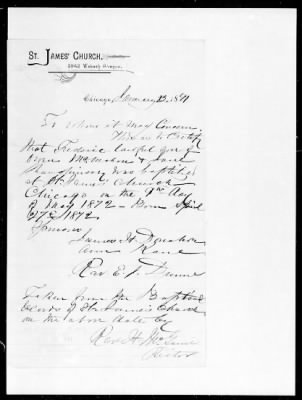 ST. JAMES' CHURCH.
2942 Wabash Avenue.
Chicago, January 13, 1891
To whom it may Concern
This is to Certify
that Frederic lawful son of
& Jane
was baptized
at St. James' Church
Chicago on the 9th day
of May 1872 - Born April
27th 1872.
Sponsors
James H. Donahoe
Ann Kane
Rev E. J. Dunne
Taken from the Baptismal
Records of St. James' Church
on the above date by
Rev H. McGuire
Rector